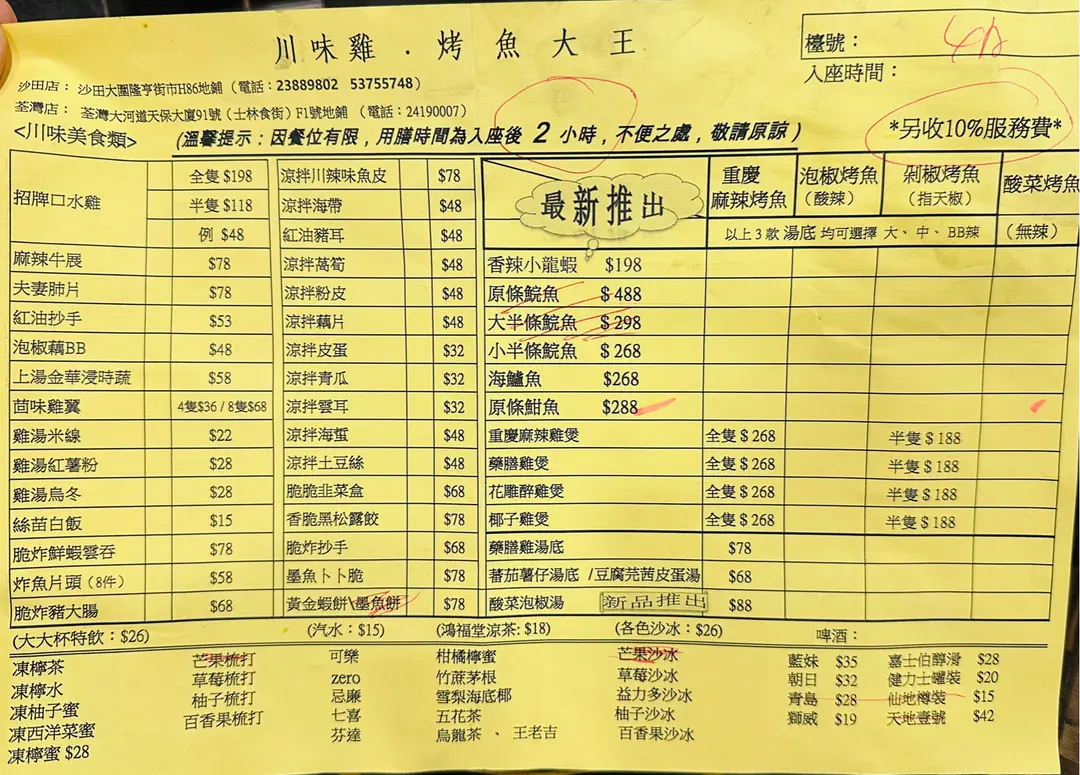 川味雞．烤魚大王
檯號： 4A
入座時間：
沙田店： 沙田大圍隆亨街市H86地鋪（電話：23889802 53755748）
荃灣店： 荃灣大河道天保大廈91號（士林食街）F1號地鋪 （電話：24190007）
<川味美食類>
(溫馨提示：因餐位有限，用膳時間為入座後 2 小時，不便之處，敬請原諒)
*另收10%服務費*
招牌口水雞 全隻 $198
半隻 $118
例 $48
麻辣牛展 $78
夫妻肺片 $78
紅油抄手 $53
泡椒藕BB $48
上湯金華浸時蔬 $58
茴味雞翼 4隻$36 / 8隻$68
雞湯米線 $22
雞湯紅薯粉 $28
雞湯烏冬 $28
絲苗白飯 $15
脆炸鮮蝦雲吞 $78
炸魚片頭（8件） $58
脆炸豬大腸 $68
涼拌川辣味魚皮 $78
涼拌海帶 $48
紅油豬耳 $48
涼拌萵筍 $48
涼拌粉皮 $48
涼拌藕片 $48
涼拌皮蛋 $32
涼拌青瓜 $32
涼拌雲耳 $32
涼拌海蜇 $48
涼拌土豆絲 $48
脆脆韭菜盒 $68
香脆黑松露餃 $78
脆炸抄手 $68
墨魚卜卜脆 $78
黃金蝦餅\墨魚餅 $78
最新推出
重慶麻辣烤魚
泡椒烤魚（酸辣）
剁椒烤魚（指天椒）
酸菜烤魚
以上3款 湯底 均可選擇 大、中、BB辣
（無辣）
香辣小龍蝦 $198
原條鯇魚 $488
大半條鯇魚 $298
小半條鯇魚 $268
海鱸魚 $268
原條魽魚 $288
重慶麻辣雞煲 全隻 $268 半隻 $188
藥膳雞煲 全隻 $268 半隻 $188
花雕醉雞煲 全隻 $268 半隻 $188
椰子雞煲 全隻 $268 半隻 $188
藥膳雞湯底 $78
蕃茄薯仔湯底 /豆腐芫茜皮蛋湯 $68
酸菜泡椒湯 新品推出 $88
(大大杯特飲：$26)
凍檸茶
凍檸水
凍柚子蜜
凍西洋菜蜜
凍檸蜜 $28
芒果梳打
草莓梳打
柚子梳打
百香果梳打
(汽水：$15)
可樂
zero
忌廉
七喜
芬達
(鴻福堂涼茶: $18)
柑橘檸蜜
竹蔗茅根
雪梨海底椰
五花茶
烏龍茶 、 王老吉
(各色沙冰：$26)
芒果沙冰
草莓沙冰
益力多沙冰
柚子沙冰
百香果沙冰
啤酒：
藍妹 $35 嘉士伯醇滑 $28
朝日 $32 健力士罐裝 $20
青島 $28 仙地樽裝 $15
獅威 $19 天地壹號 $42